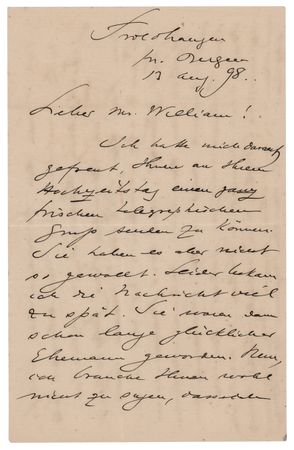 Troldhaugen
pr. Bergen
12 aug. 98.
Lieber Mr. William!
Ich hatte mich darauf
gefreut, Ihnen an Ihrem
Hochzeitstag einen ganz
frischen telegraphischen
Gruss senden zu können.
Sie haben es aber nicht
so gewollt. Leider bekam
ich die Nachricht viel
zu spät. Sie waren dann
schon lange glücklicher
Ehemann geworden. Nun,
ich brauche Ihnen wohl
nicht zu sagen,